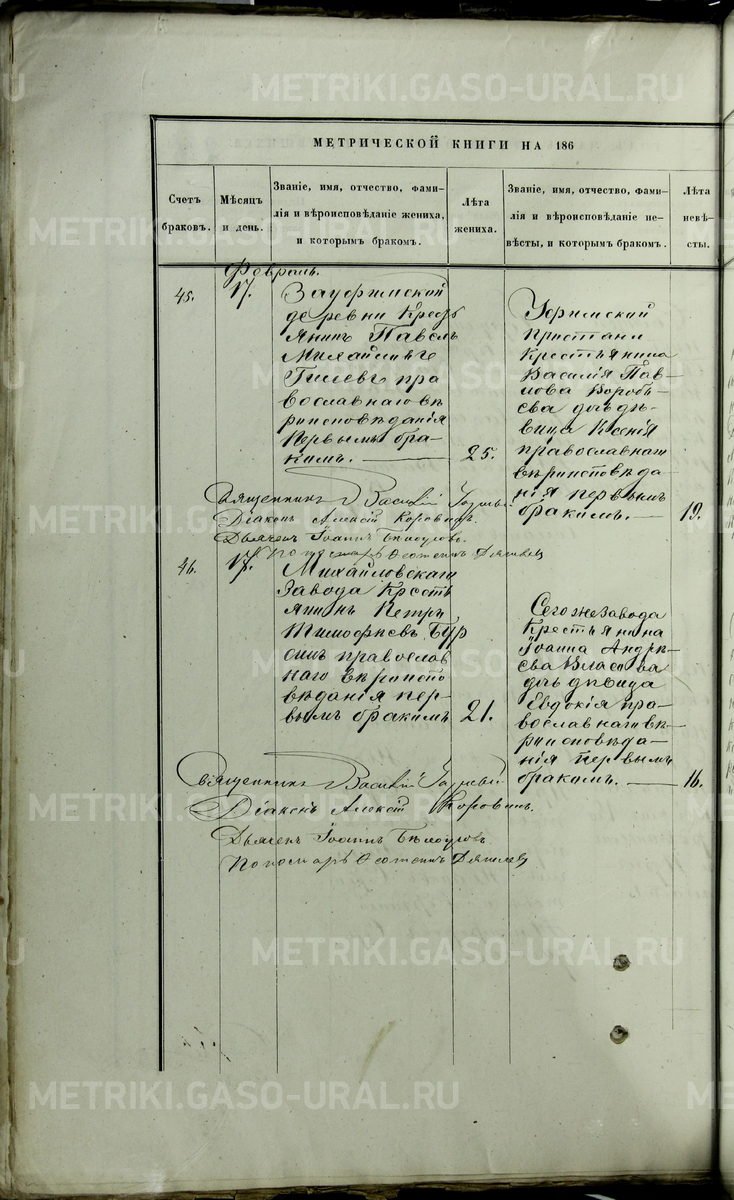 МЕТРИЧЕСКОЙ КНИГИ НА 186
Счетъ
браковъ.
Мѣсяцъ
и день.
Званіе, имя, отчество, фами-
лія и вѣроисповѣданіе жениха,
и которымъ бракомъ.
Лѣта
жениха.
Званіе, имя, отчество, фами-
лія и вѣроисповѣданіе не-
вѣсты, и которымъ бракомъ.
Лѣта
невѣ-
сты.
Февраль.
45.
17.
Зауфимской
деревни Кресть
янинъ Павелъ
Михайловъ
пра
вославнаго вѣ
роисповѣданія
первымъ бра-
комъ.
25.
Уфимской
пристани
крестьянина
Василія Пав-
лова Воробь-
ева дочь дѣ-
вица Ксенія
православнаго
вѣроисповѣда
нія первымъ
бракомъ.
19.
Священникъ Василій
Діаконъ Алексій Коровинъ.
Дьячекъ Іоаннъ Бѣлоусовъ.
Пономарь
46.
17.
Михайловскаго
Завода Кресть
янинъ Петръ
Тимофѣевъ Бур
православ
наго вѣроиспо
вѣданія пер-
вымъ бракомъ
21.
Сегоже Завода
Крестьянина
Іоанна Андрѣ-
ева Власова
дочь дѣвица
Евдокія пра-
вославнаго вѣ-
роисповѣда-
нія первымъ
бракомъ.
16.
Священникъ Василій
Діаконъ Алексій Коровинъ.
Дьячекъ Іоаннъ Бѣлоусовъ.
Пономарь
METRIKI.GASO-URAL.RU